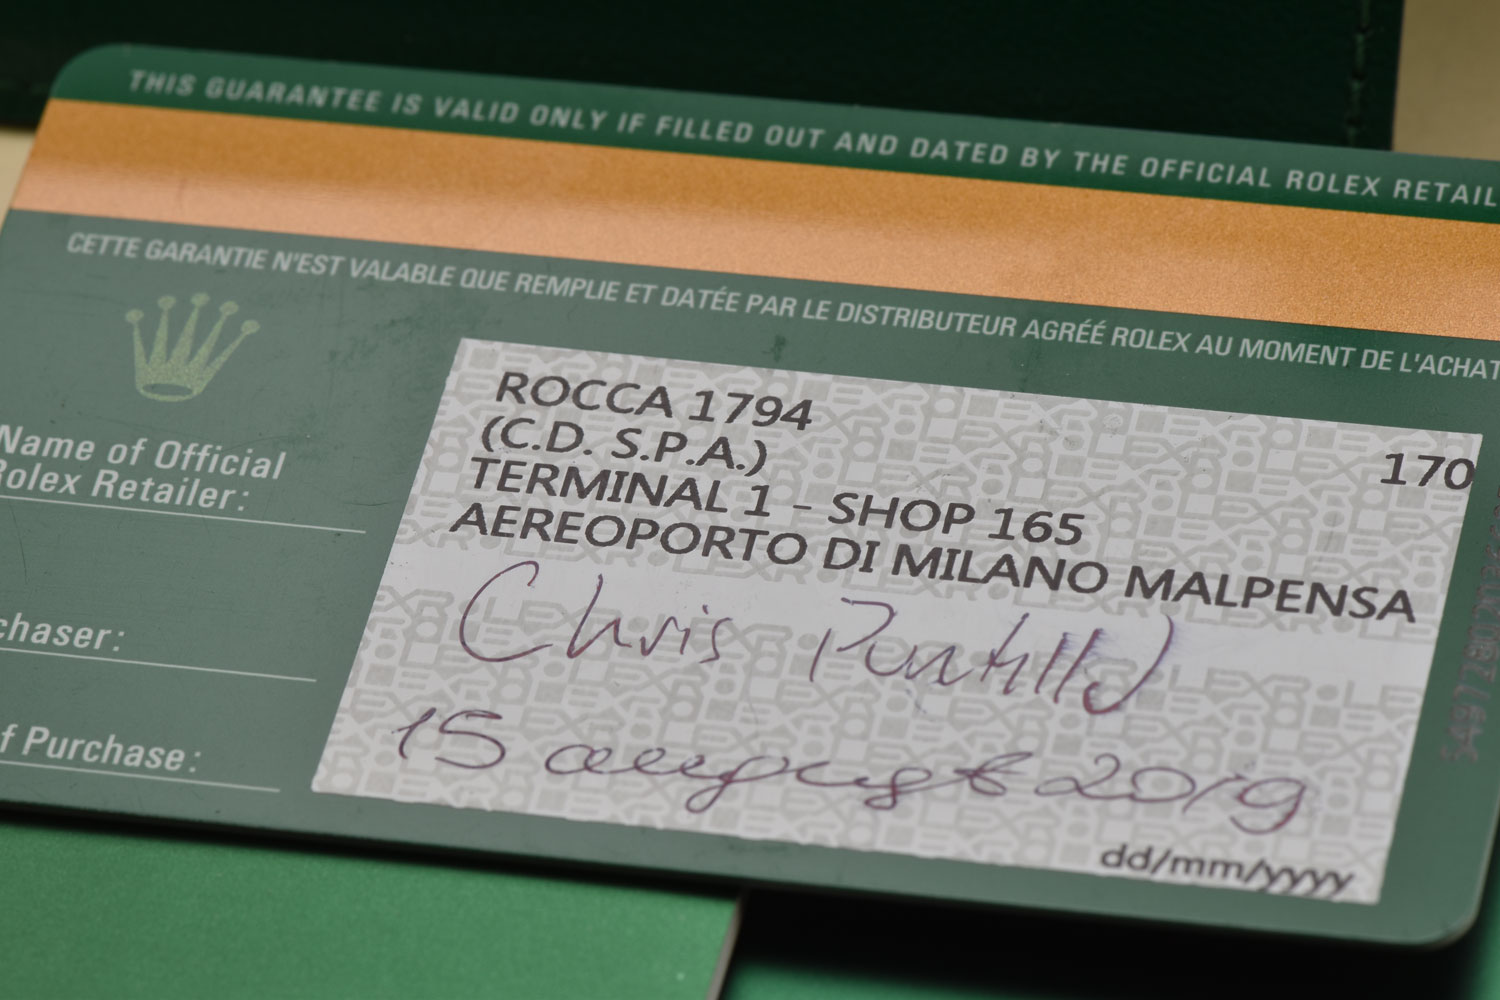 THIS GUARANTEE IS VALID ONLY IF FILLED OUT AND DATED BY THE OFFICIAL ROLEX RETAIL
CETTE GARANTIE N'EST VALABLE QUE REMPLIE ET DATÉE PAR LE DISTRIBUTEUR AGRÉÉ ROLEX AU MOMENT DE L'ACHAT
ROCCA 1794
170
(C.D. S.P.A.)
TERMINAL 1 - SHOP 165
AEREOPORTO DI MILANO MALPENSA
Name of Official
Rolex Retailer:
chaser:
Chris
f Purchase:
15 august 2019
dd/mm/yyyy